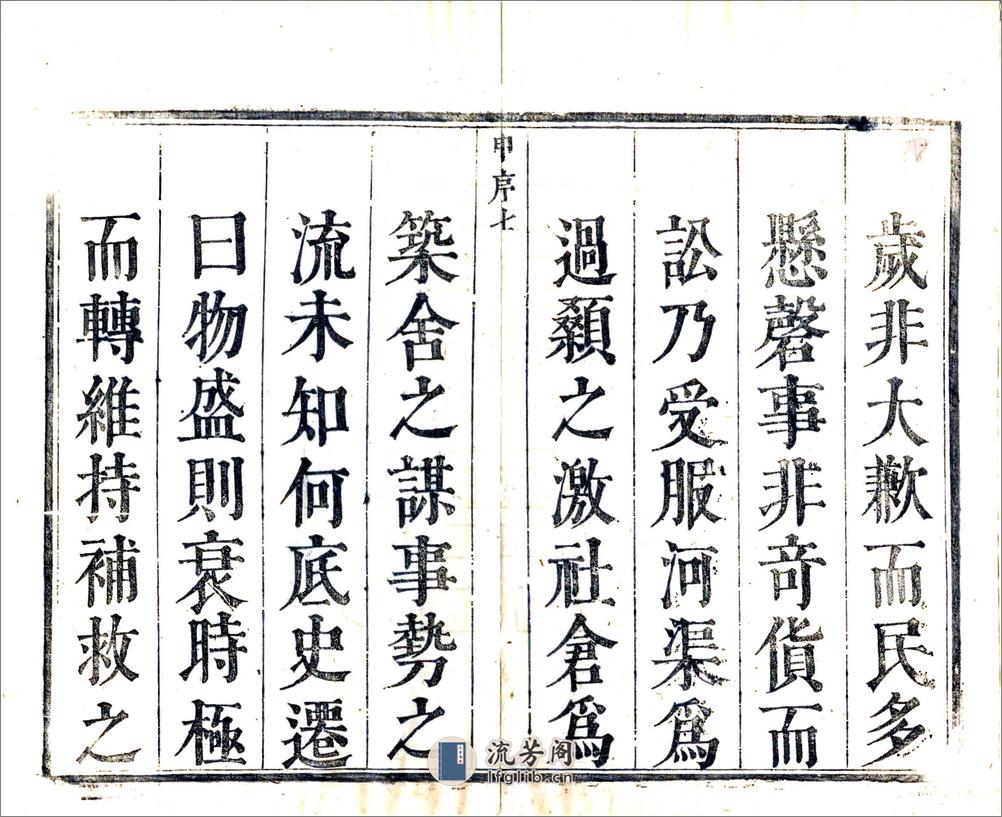 歲非大歉而民多
懸磬事非奇貨而
訟乃受服河渠爲
過顙之激社倉爲
申序七
築舍之謀事勢之
流未知何底史遷
曰物盛則衰時極
而轉維持補救之
流芳阁
lfglib.cn